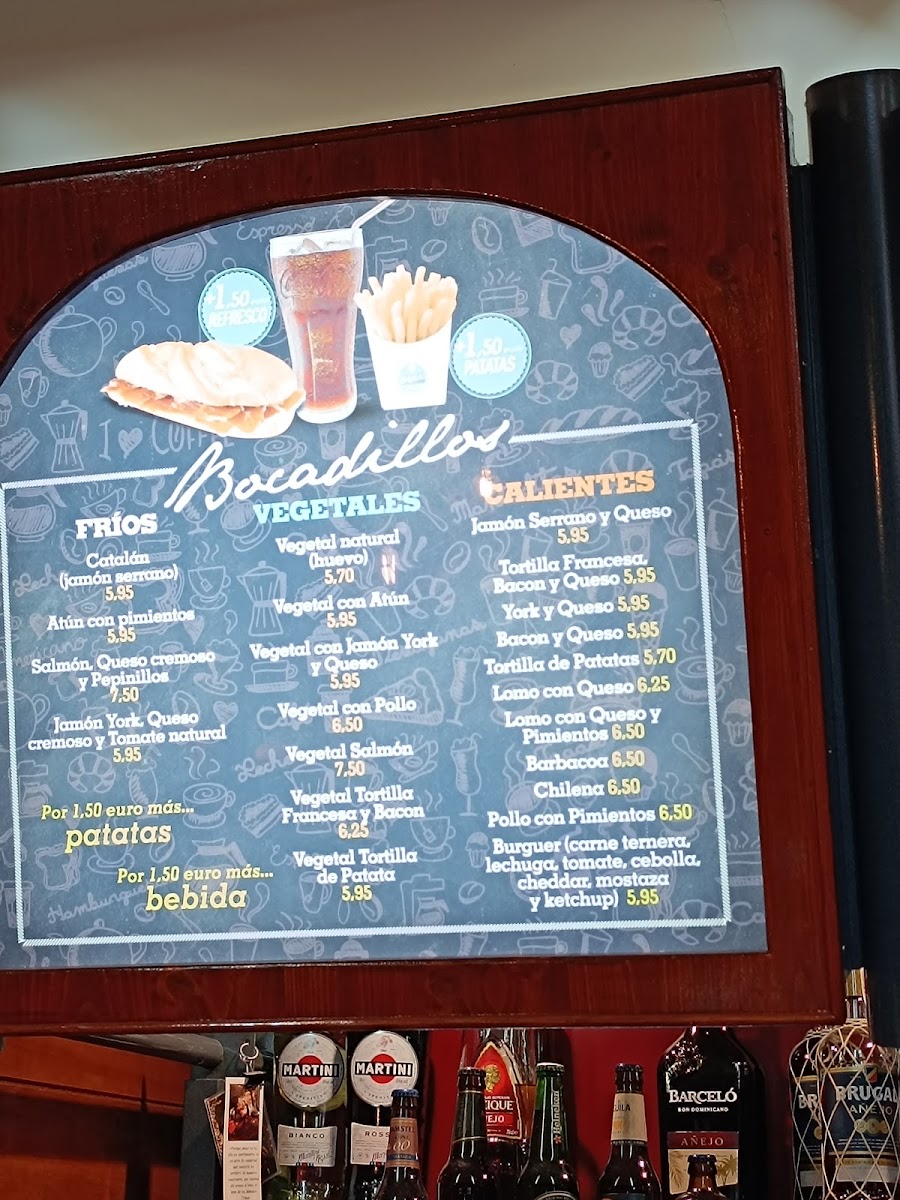 +1,50
REFRESCO
+1,50
PATATAS
Bocadillos
FRÍOS
Catalán
(jamón serrano)
5,95
Atún con pimientos
5,95
Salmón, Queso cremoso
y Pepinillos
7,50
Jamón York, Queso
cremoso y Tomate natural
5,95
Por 1,50 euro más...
patatas
Por 1,50 euro más...
bebida
VEGETALES
Vegetal natural
(huevo)
5,70
Vegetal con Atún
5,95
Vegetal con Jamón York
y Queso
5,95
Vegetal con Pollo
6,50
Vegetal Salmón
7,50
Vegetal Tortilla
Francesa y Bacon
6,25
Vegetal Tortilla
de Patata
5,95
CALIENTES
Jamón Serrano y Queso
5,95
Tortilla Francesa,
Bacon y Queso 5,95
York y Queso 5,95
Bacon y Queso 5,95
Tortilla de Patatas 5,70
Lomo con Queso 6,25
Lomo con Queso y
Pimientos 6,50
Barbacoa 6,50
Chilena 6,50
Pollo con Pimientos 6,50
Burguer (carne ternera,
lechuga, tomate, cebolla,
cheddar, mostaza
y ketchup) 5,95
Espresso
I COFFEE
MARTINI
BIANCO
MARTINI
CIQUE
Heineken
BARCELÓ
RON DOMINICANO
AÑEJO
BRUGAL
AÑEJO